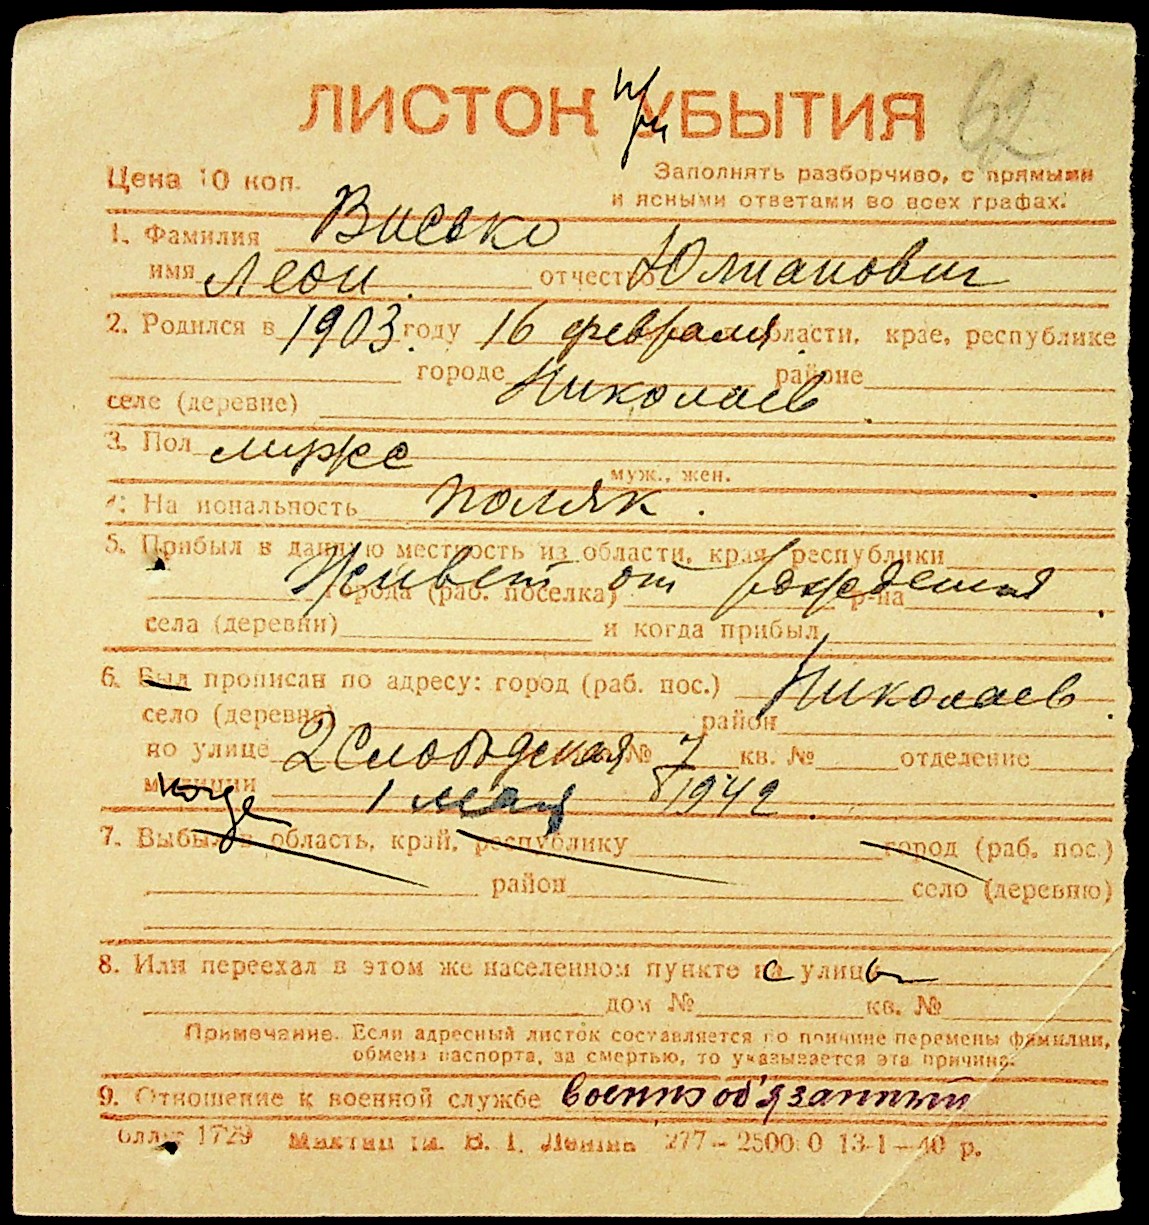 ЛИСТОК при УБЫТИЯ 62
Цена 10 коп. Заполнять разборчиво, с прямыми
и ясными ответами во всех графах.
1. Фамилия Висько
имя Леон. отчество Юлианович
2. Родился в 1903. году 16 февраля. области, крае, республике
городе Николаев районе
селе (деревне)
3. Пол мужс
муж., жен.
4. На иональность поляк.
5. Прибыл в данную местность из области, края, республики
Живет от рождения.
города (раб. поселка) р-на
села (деревни) и когда прибыл
6. Был прописан по адресу: город (раб. пос.) Николаев.
село (деревня) район
по улице 2 Слободская № 7 кв. № отделение
милиции когда 1 мая 1942.
7. Выбыл в область, край, республику город (раб. пос.)
район село (деревню)
8. Или переехал в этом же населенном пункте с улицы
дом № кв. №
Примечание. Если адресный листок составляется по причине перемены фамилии,
обмена паспорта, за смертью, то указывается эта причина.
9. Отношение к военной службе военнооб'язанный
1729 В. І. Леніна 277—2500 0 13-1—40 р.